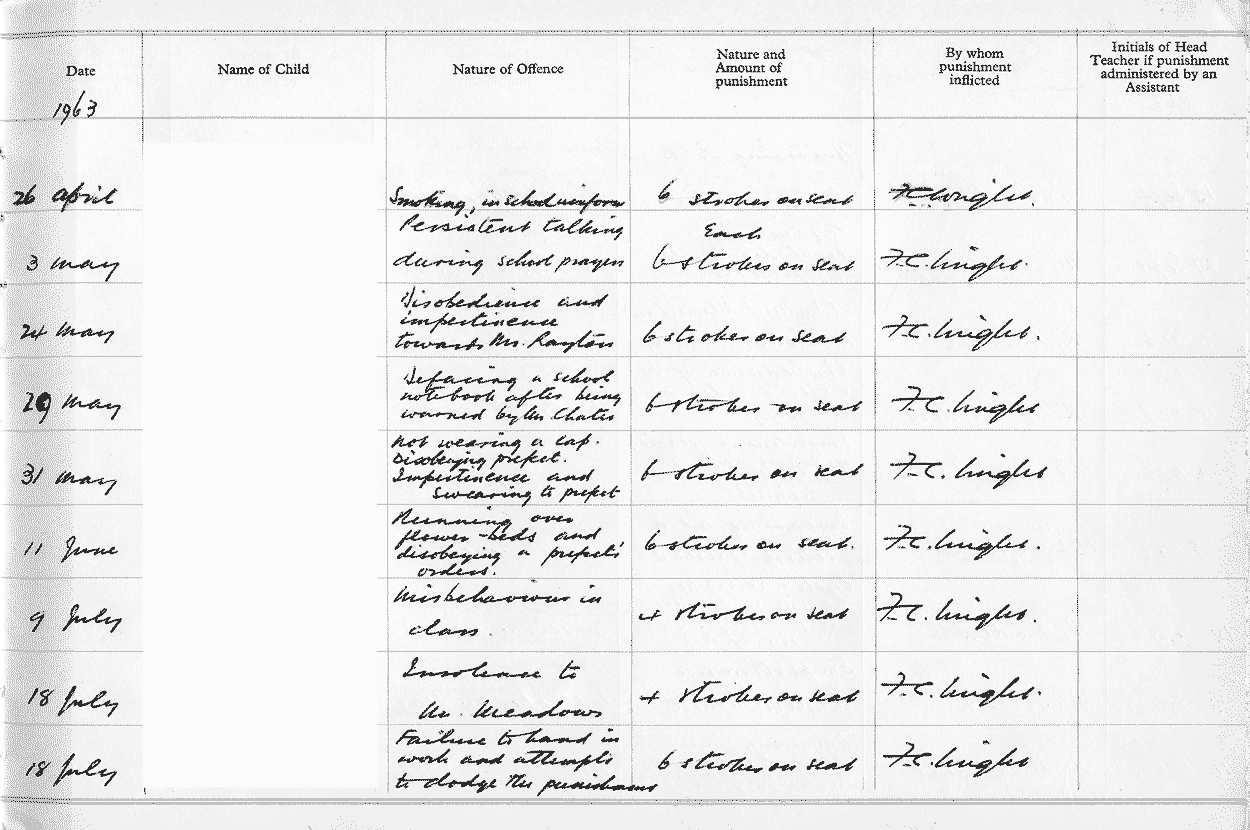 Date
Name of Child
Nature of Offence
Nature and
Amount of
punishment
By whom
punishment
inflicted
Initials of Head
Teacher if punishment
administered by an
Assistant
1963
26 April
Smoking, in school uniform
6 strokes on seat
F.C. Wright.
3 May
Persistent talking
during school prayers
Each
6 strokes on seat
F.C. Wright.
24 May
Disobedience and
impertinence
towards Mr.
6 strokes on seat
F.C. Wright.
29 May
Defacing a school
notebook after being
warned by Mr
6 strokes on seat
F.C. Wright
31 May
Not wearing a cap.
Disobeying prefect.
Impertinence and
swearing to prefect
6 strokes on seat
F.C. Wright
11 June
Running over
flower-beds and
disobeying a prefect's
orders.
6 strokes on seat.
F.C. Wright.
9 July
Misbehaviour in
class.
4 strokes on seat
F.C. Wright.
18 July
Insolence to
Mr. Meadows
4 strokes on seat
F.C. Wright.
18 July
Failure to hand in
work and attempts
to dodge the punishment
6 strokes on seat
F.C. Wright